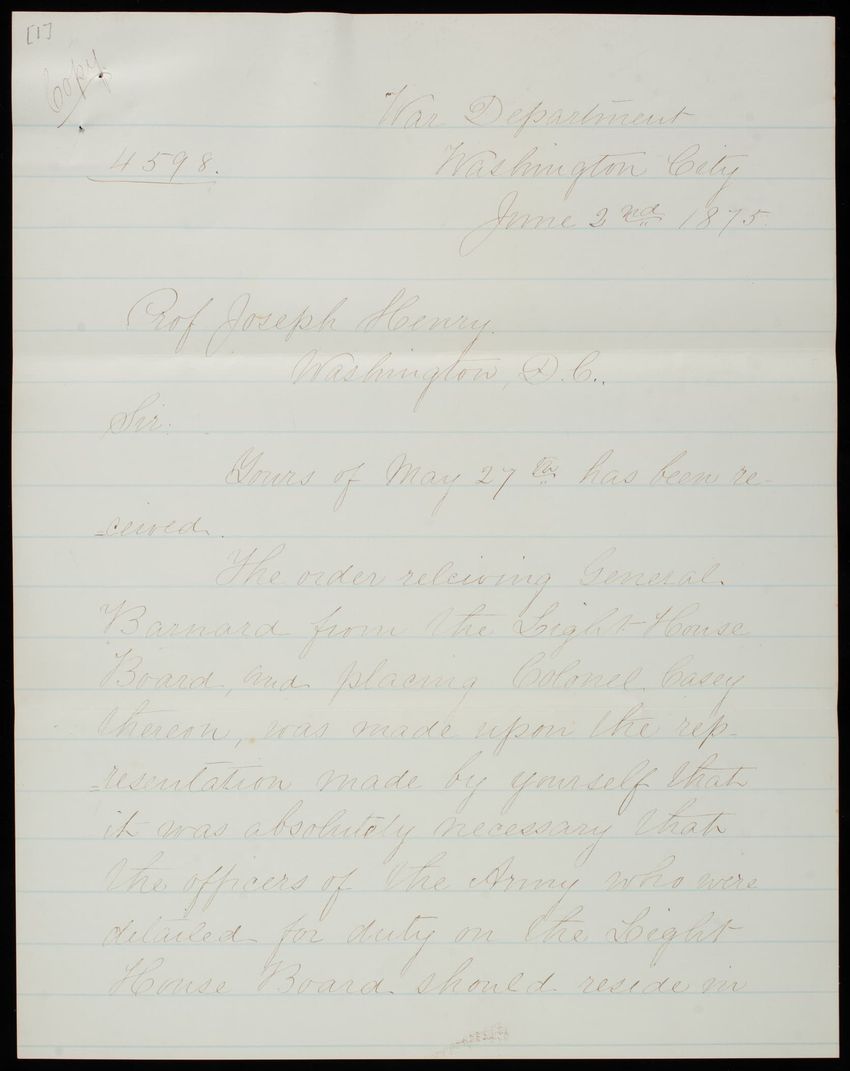 [1]
Copy
War Department
4598.
Washington City
June 2nd 1875.
Prof Joseph Henry.
Washington, D.C.,
Sir:
Yours of May 27th has been re-
-ceived.
The order releiving General
Barnard from the Light-House
Board, and placing Colonel Casey
thereon, was made upon the rep-
-resentation made by yourself that
it was absolutely necessary that
the officers of the Army who were
detailed for duty on the Light
House Board should reside in